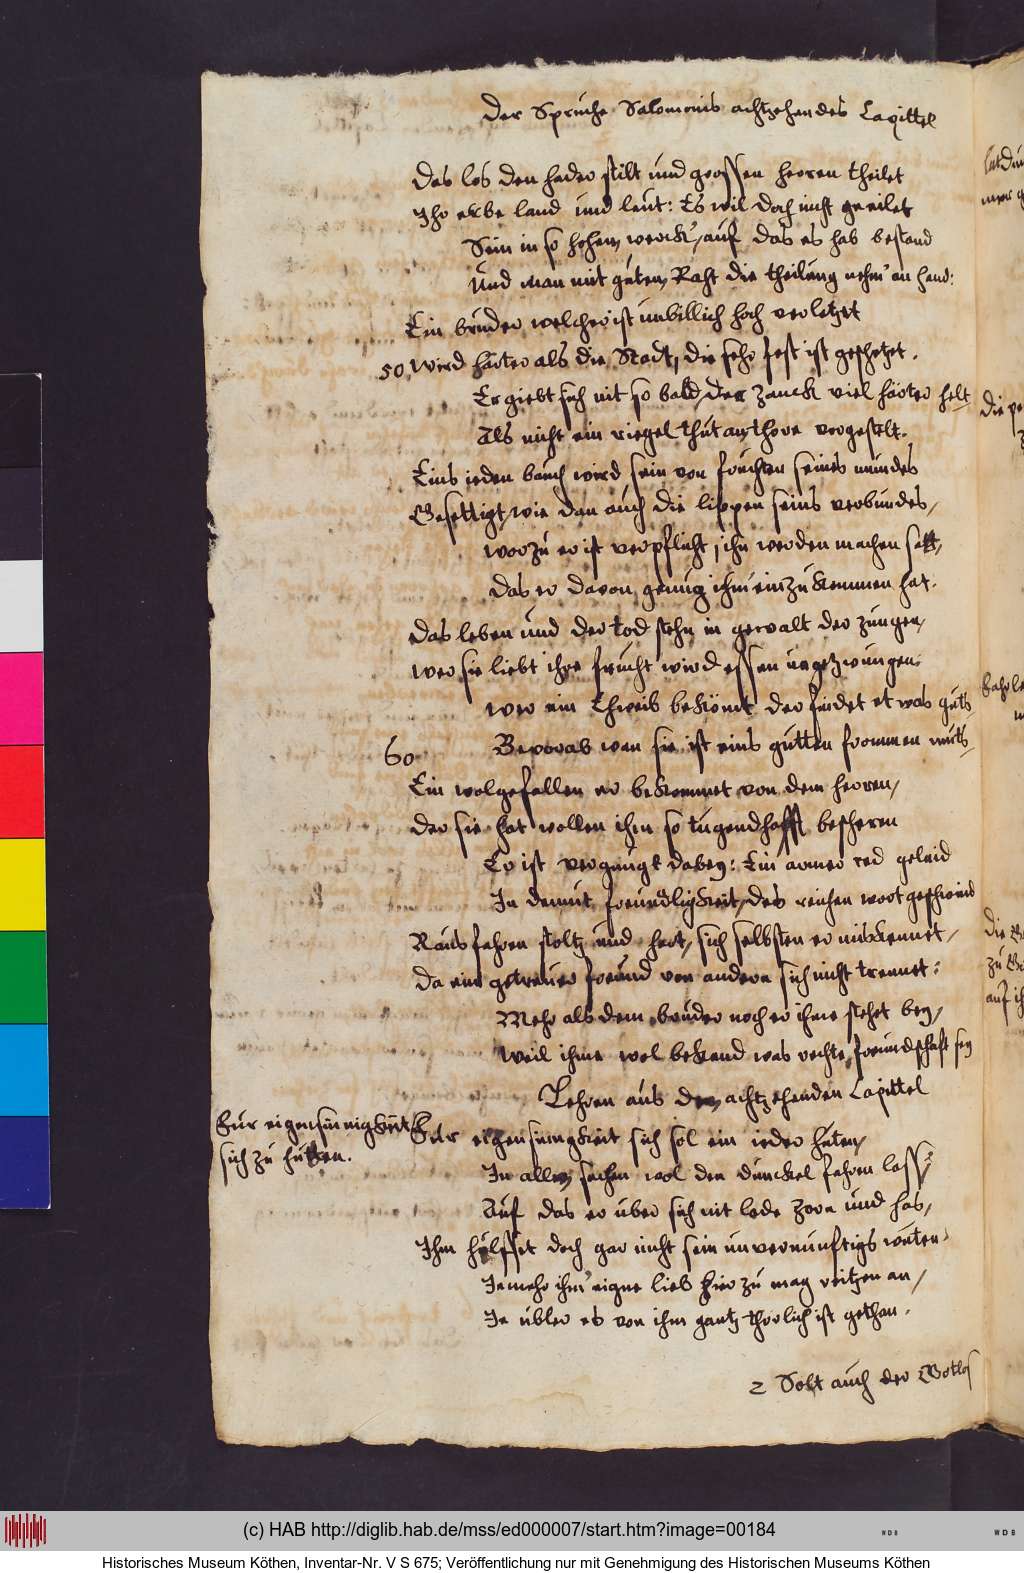 Der Spruche Salomonis achtzehendes Capittel
Das los den hader stilt und grossen herren theilet
Ihr erbe land und leut: Es wil doch nicht geeilet
Sein in so hohem werck, auf das es hab bestand
Und man mit gutem Raht die theilung nehm' an hand:
Ein bruder welcher ist unbillich hoch verletzt
50 Wird harter als die Stadt, die sehr fest ist geschetzet.
Er giebt sich nit so bald, der zanck viel härter helt
Als nicht ein riegel thut am thore vorgestelt.
Eins ieden bauch wird sein von fruchten seines mundes
Gesettigt, wie dan auch die lippen seins verbundes,
worzu er ist verpflicht, ihn werden machen satt,
das er davon genug ihm einzukommen hat.
Das leben und der tod stehn in gewalt der zungen,
wer sie liebt ihre frucht wird essen ungezwungen:
wer ein Ehweib bekömt der findet etwas guts,
60 Bevorab wan sie ist eins gutten frommen muts,
Ein wolgefallen er bekommet von dem herren,
der sie hat wollen ihm so tugendhafft bescheren
Er ist vergnugt dabey: Ein armer red geleid
In demut freundligkeit, des reichen wort geschwind
Raus fahren stoltz und hart, sich selbsten er miskennet,
Da ein getreuer freund von andern sich nicht trennet:
Mehr als dem bruder noch er ihme stehet bey,
Weil ihme wol bekand was rechte freundschaft sey
Lehren aus dem achtzehenden Capittel
Fur eigensinnigkeit
sich zu hutten.
Fur eigensinnigkeit sich sol ein ieder huten,
In allen sachen wol den dunckel fahren lass'
Auf das er uber sich nit lade zorn und has,
Ihm hülffet doch gar nicht sein unvernunftigs wuten.
Iemehr ihm' eigne lieb hier zu mag reitzen an,
Ie ubler es von ihm gantz thörlich ist gethan.
2 Solt auch der Gotlos